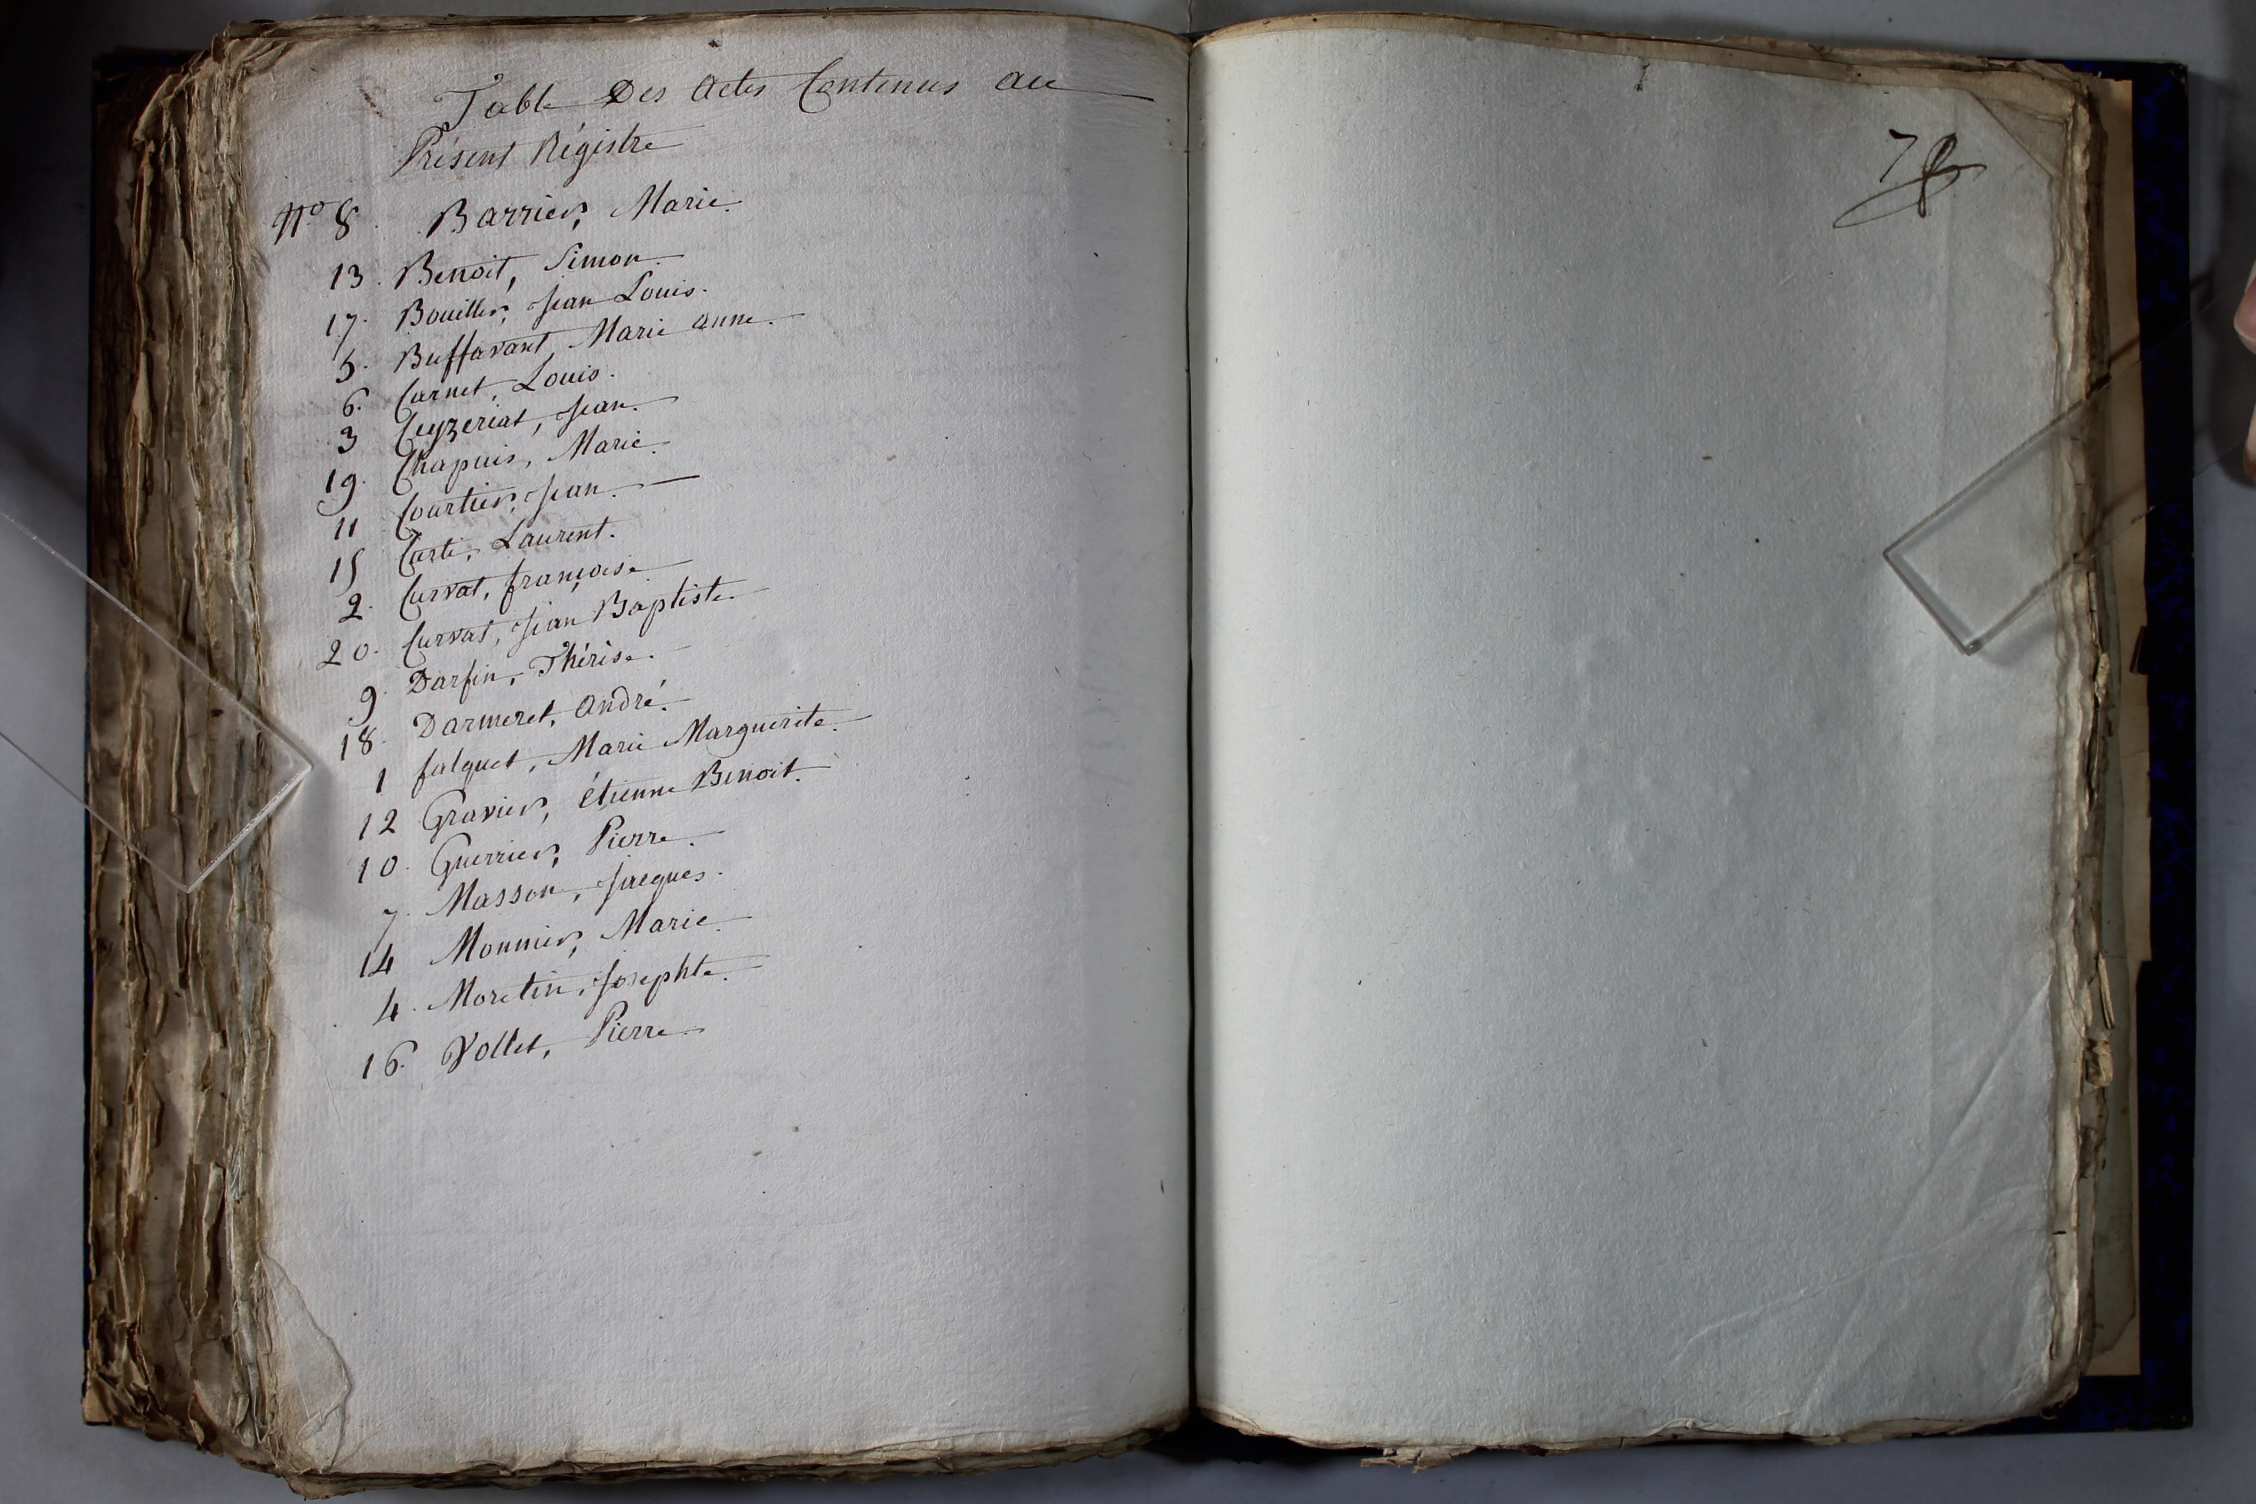 Table Des actes Contenus au
Présent Régistre
No 8. Barrier, Marie.
13. Benoit, Simon.
17. Bouiller, Jean Louis.
5. Buffavant, Marie anne.
6. Carnet, Louis.
3 Ceyzeriat, Jean.
19. Chapuis, Marie.
11 Courtier, Jean.
15 Laurent.
2. Curvat, françoise.
20. Curvat, Jean Baptiste.
9. Darfin, Thérèse.
18. Darmeret, andré.
1 falquet, Marie Marguerite.
12 Gravier, étienne Benoit.
10. Guerrier, Pierre.
7. Masson, Jacques.
14 Monnier, Marie.
4. Moretin, Josephte.
16. Vollet, Pierre
7